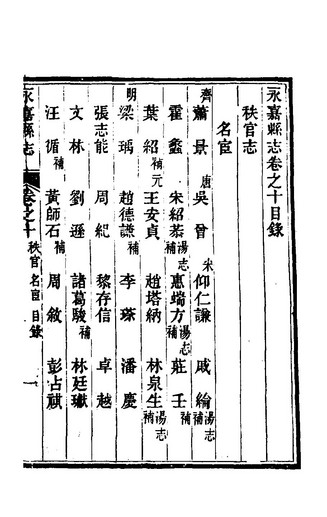 永嘉縣志卷之十目錄
秩官志
名宦
齊 蕭景 唐 吳曾 宋 仰仁謙 戚綸 湯志補
霍蠡 宋紹恭 湯志補 惠端方 湯志補 莊壬 補
葉紹 補 元 王安貞 趙塔納 林泉生 湯志補
明 梁瑀 趙德謙 補 李琛 潘慶
張志能 周紀 黎存信 卓越
文林 劉遜 諸葛駿 補 林廷瓛
汪循 補 黃師石 補 周敘 彭占祺
永嘉縣志 卷之十 秩官 名宦 目錄 一